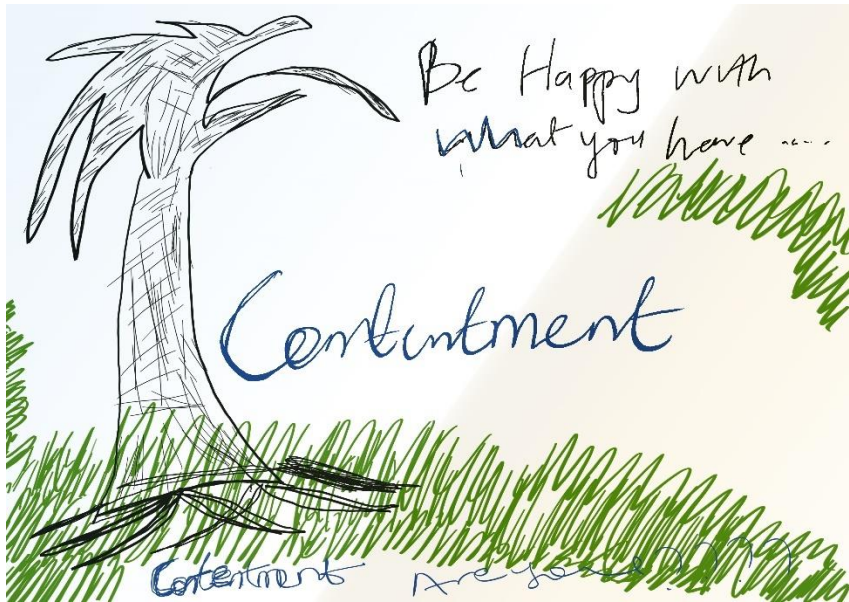 Be Happy with
what you have ....
Contentment
Contentment Are you ????